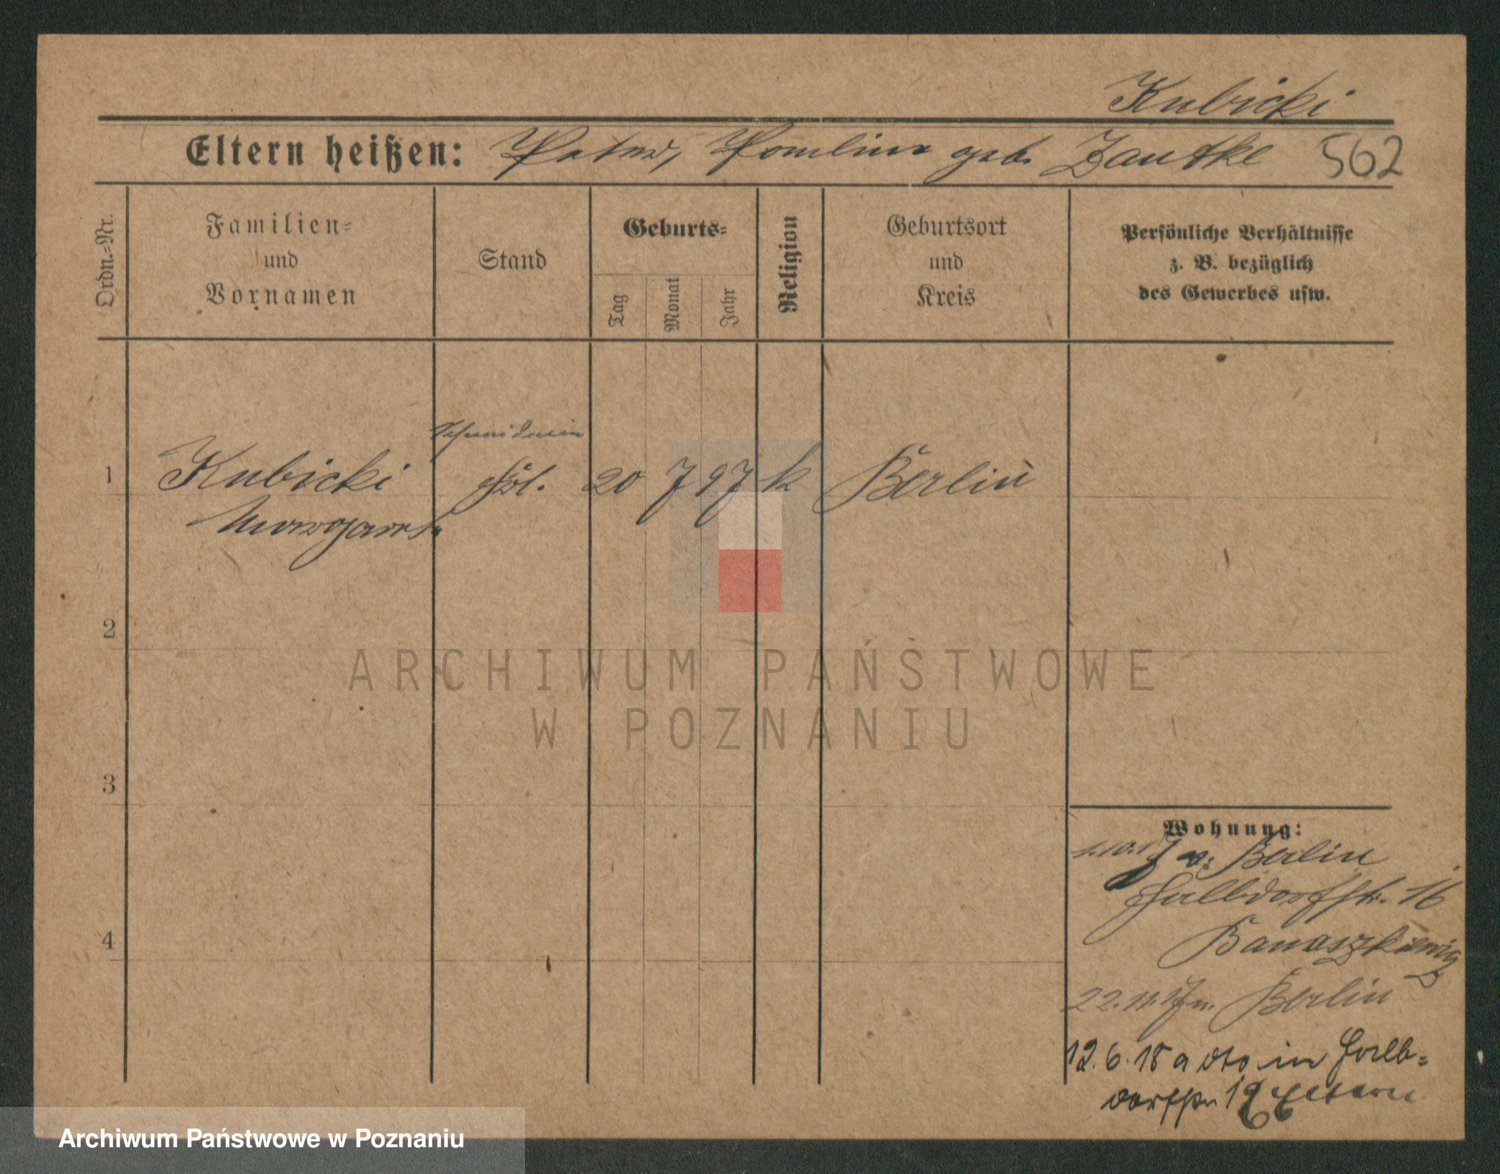 Kubicki
Eltern heißen: Peter, Paulina geb. Zandke 562
Ordn.-Nr.
Familien-
und
Vornamen
Stand
Geburts-
Tag
Monat
Jahr
Religion
Geburtsort
und
Kreis
Persönliche Verhältnisse
z. B. bezüglich
des Gewerbes usw.
Schneiderin
1 Kubicki Frl. 20 7 97 k Berlin
Margareta
2
3
4
Wohnung:
v. Berlin
Halbdorfstr. 16
Banaszkiewicz
22. 11. 17 n. Berlin
12. 6. 18 a dto in Halb-
dorfstr. 16 Eltern
ARCHIWUM PAŃSTWOWE
W POZNANIU
Archiwum Państwowe w Poznaniu